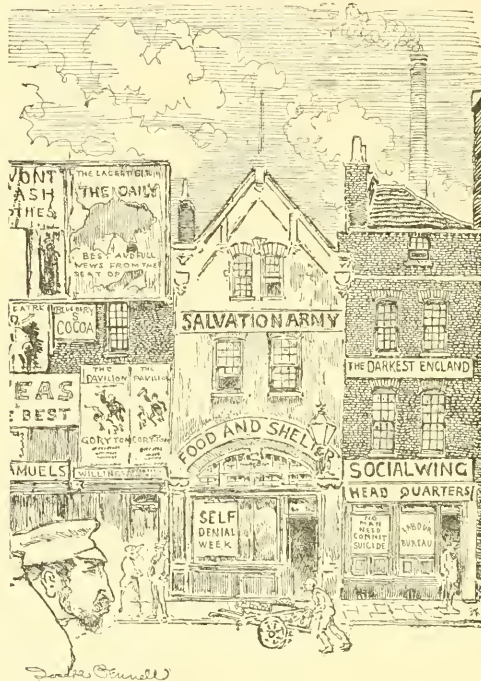 WONT
WASH
CLOTHES
THE DAILY
BEST AND FULL
NEWS FROM THE
SEAT OF
THEATRE
COCOA
TEAS
BEST
THE
PAVILION
GORYTON
THE
PAVILION
CORYTON
SAMUELS
WILLING
SALVATION ARMY
FOOD AND SHELTER
SELF
DENIAL
WEEK
THE DARKEST ENGLAND
SOCIAL WING
HEAD QUARTERS
NO
MAN
NEED
COMMIT
SUICIDE
LABOUR
BUREAU
Joseph Pennell